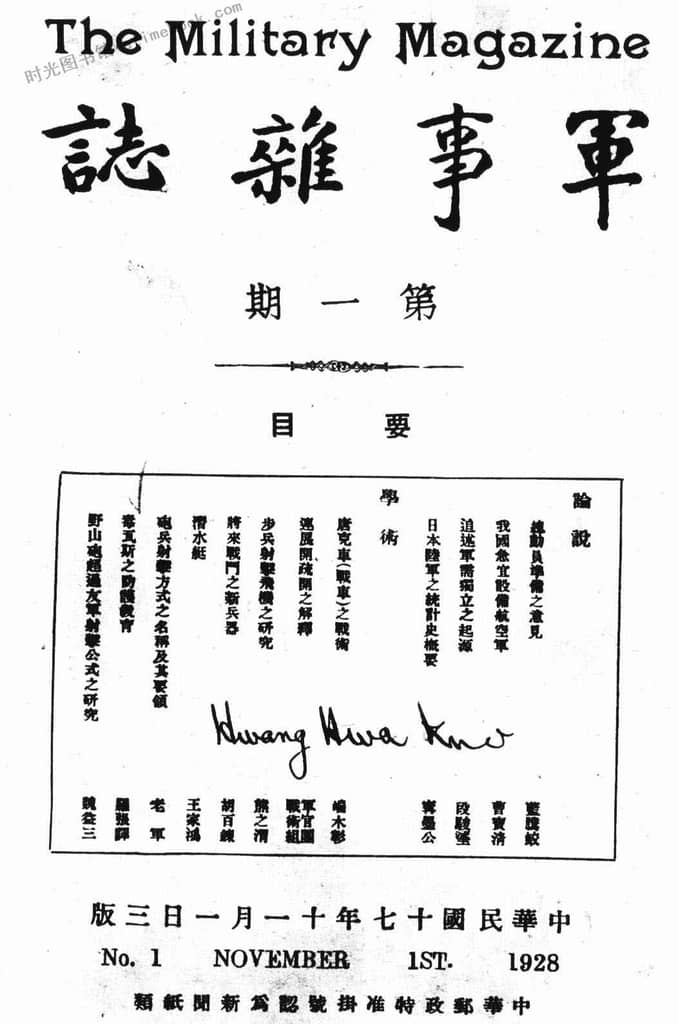 The Military Magazine
时光图书
軍事雜誌
第一期
要目
論說
總動員準備之意見 藍騰蛟
我國急宜設備航空軍 曹寶清
追述軍需獨立之起源 段駿
日本陸軍之統計史概要 寗墨公
學術
唐克車(戰車)之戰術 端木彰
連展開疏開之解釋 軍官團戰術組
步兵射擊飛機之研究 熊之渭
將來戰鬥之新兵器 胡百鍊
潛水艇 王家鴻
砲兵射擊方式之名稱及其要領 老軍
毒瓦斯之防護教育 譯
野山砲超過友軍射擊公式之研究 魏益三
Hwang Hwa Kuo
中華民國十七年十一月一日三版
No. 1 NOVEMBER 1ST. 1928
中華郵政特准掛號認爲新聞紙類